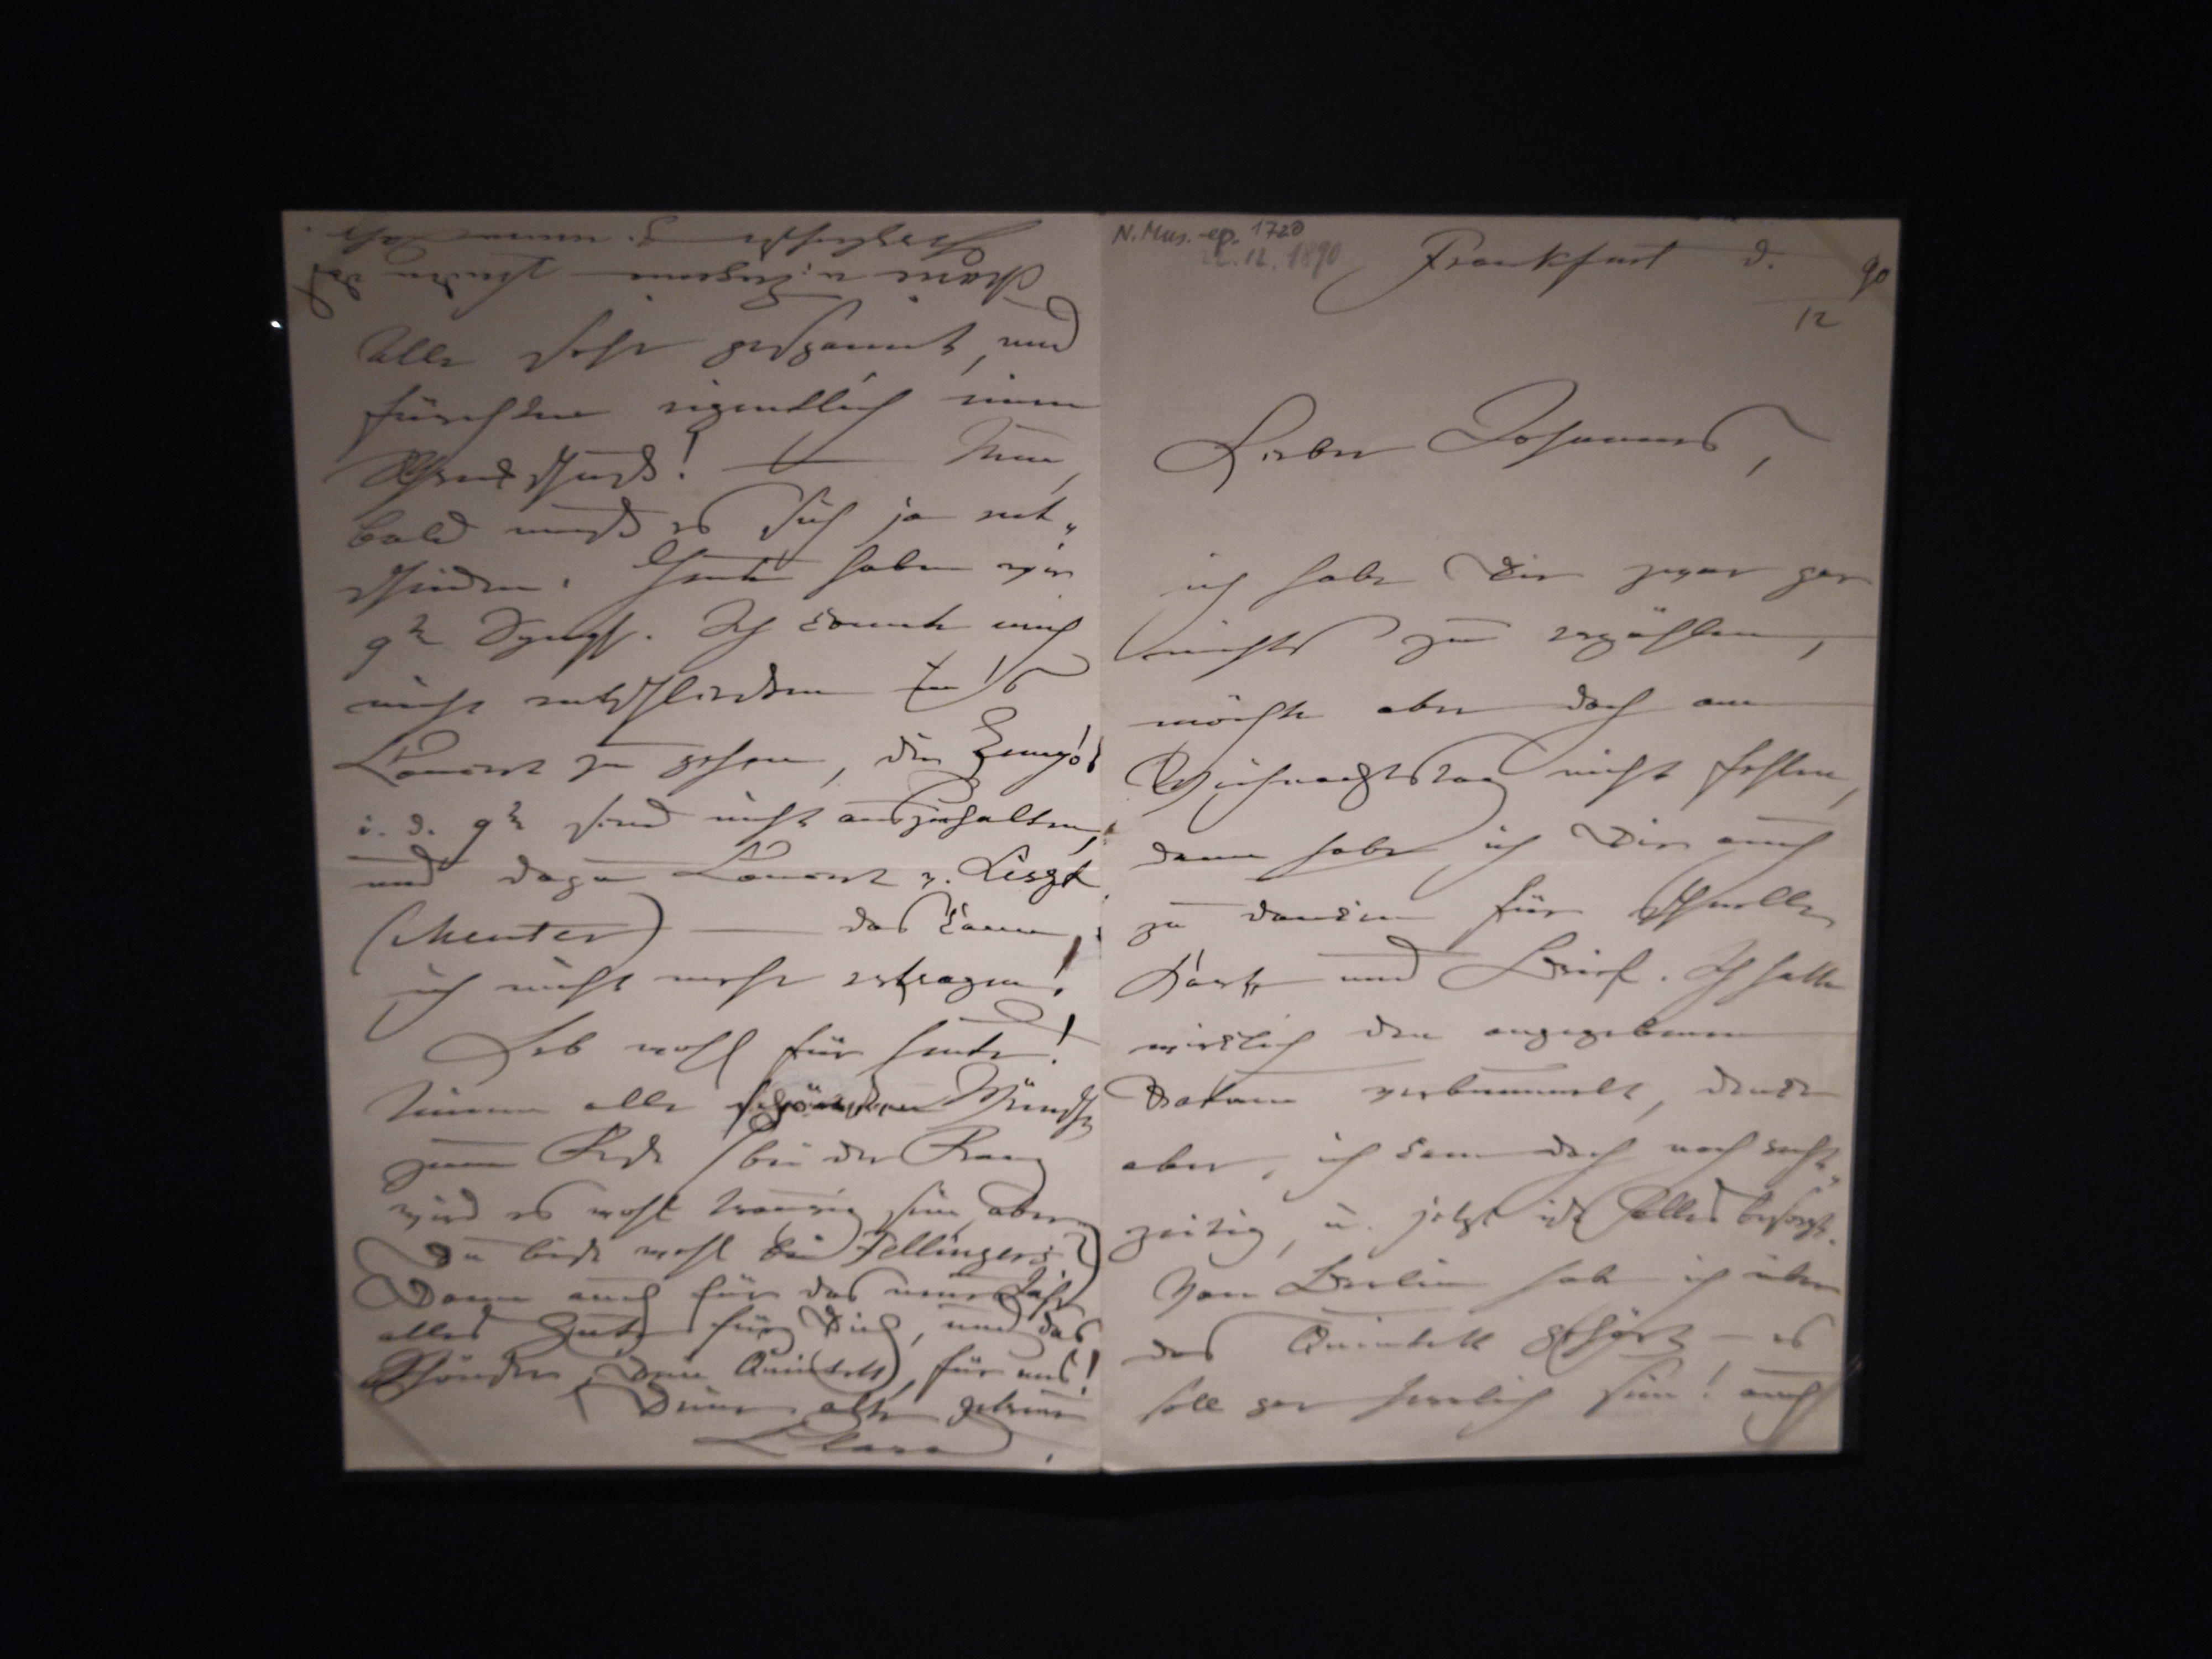 N. Mus. ep. 1720
22.12.1890
Frankfurt d. 90
12
Lieber Johannes,
ich habe Dir zwar gar
nichts zu erzählen,
möchte aber doch am
Weihnachtstag nicht fehlen,
dann habe ich Dir auch
zu danken für schnelle
Karte und Brief. Ich hatte
wirklich den angegebenen
Datum verbummelt, denke
aber, ich kam doch noch recht„
zeitig, u. jetzt ist Alles besorgt.
Von Berlin hab ich über
das Quintett gehört – es
soll gar herrlich sein! auch
Alle sehr gespannt, und
fürchten eigentlich einen
! — Nun,
bald muß es sich ja ent„
scheiden. Heute haben wir
9te Symph. Ich konnte mich
nicht entschließen in's
Concert zu gehen, die
i. d. 9te sind nicht auszuhalten,
und dazu Concert v. Liszt
(Menter) — das kann
ich nicht mehr ertragen!
Leb wohl für heute!
Nimm alle schönsten Wünsche
zum Feste (bei der Franz
wird es wohl traurig sein, aber
Du bist wohl bei Fellingers?)
Dann auch für das neue Jahr
alles Gute für Dich, und das
Schönste, Dein Quintett, für uns!
Deine alte getreue
Clara.
Marie u. Eugenie senden das
z. neuen Jahr.